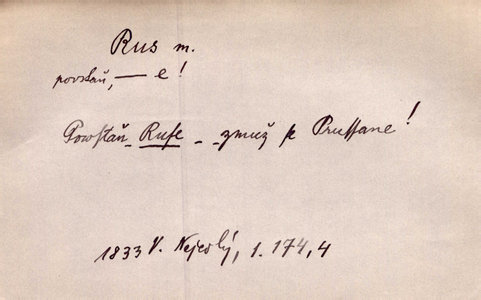 Rus m.
povstaň, — e!
Powſtaň Ruſe - - zmuž ſe Pruſſane!
1833 V. Nejedlý, 1. 174, 4